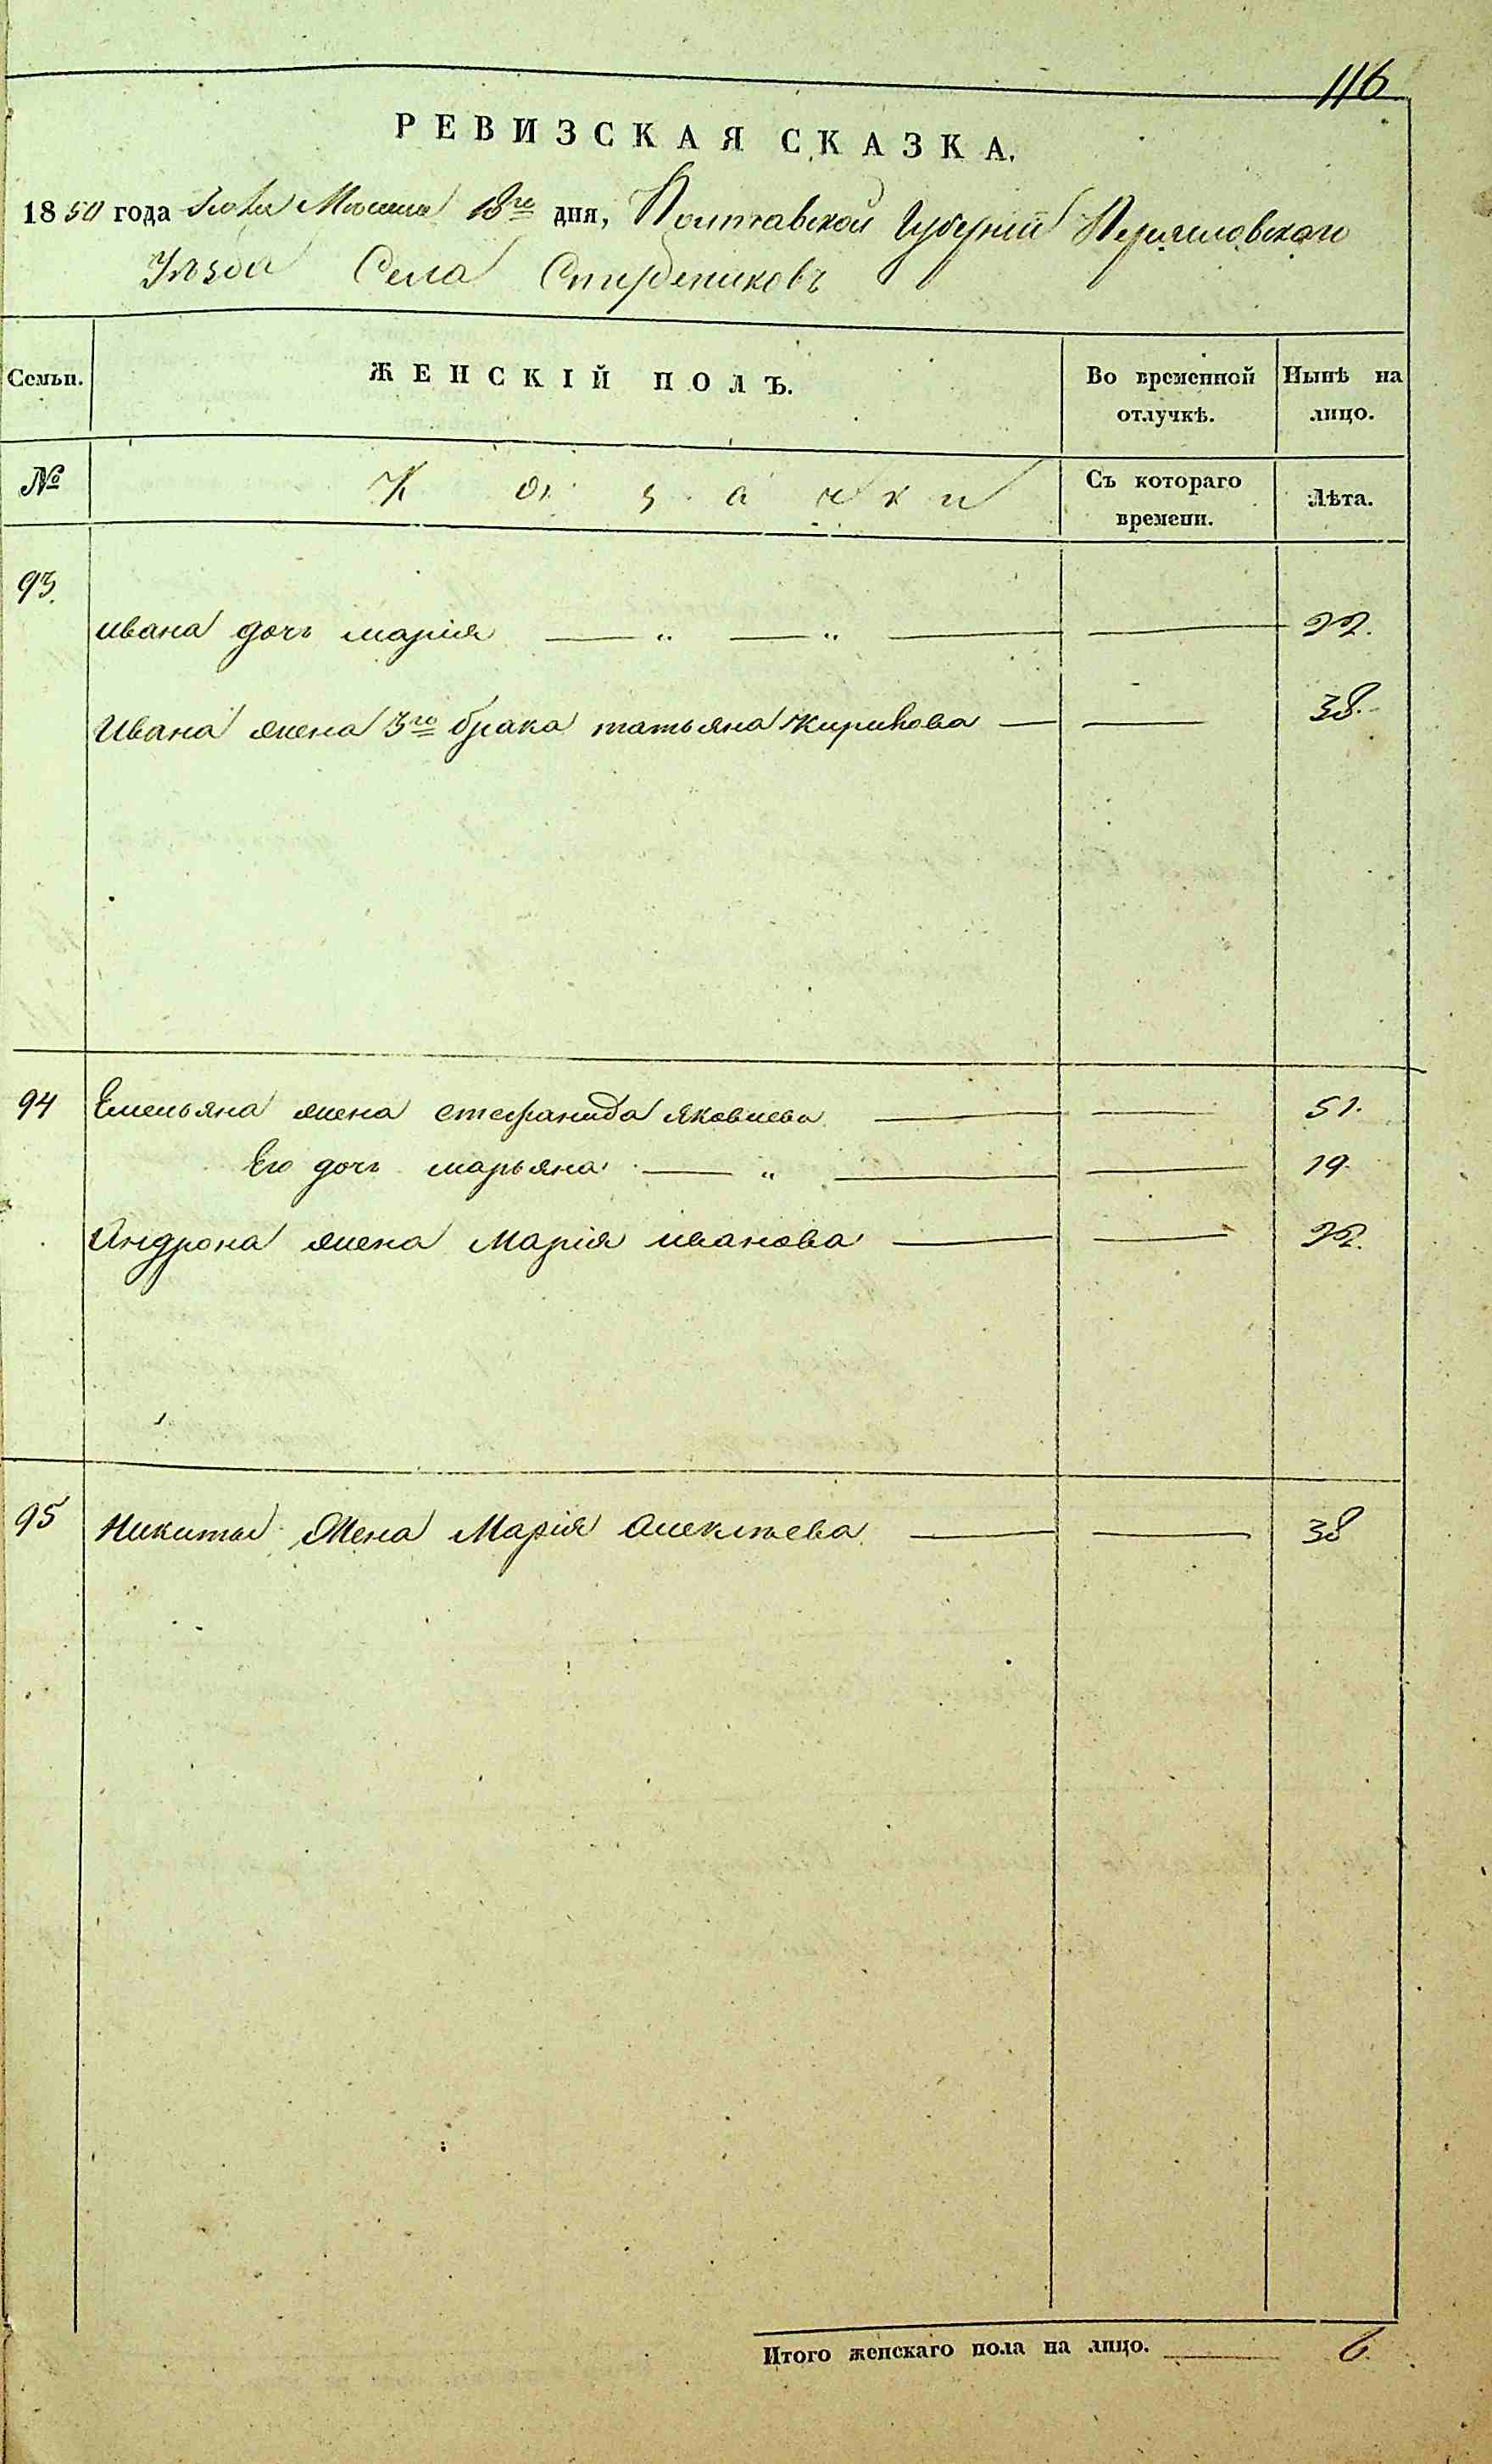 116
РЕВИЗСКАЯ СКАЗКА.
1850 года Мѣсяца 18го дня, Полтавской Губерніи Пирятиновского
Уѣзда Села
Семьи. ЖЕНСКІЙ ПОЛЪ. Во временной отлучкѣ. Нынѣ на лицо.
№ Козачки Съ котораго времени. Лѣта.
93.
ивана дочь марія — „ — „ — — 22.
Ивана жена 3го брака татьяна Кирилова — — 38.
94 Емельяна жена стефанида яковлева — — 51.
Его дочь марьяна — „ — — 19.
Андрона жена Марія иванова — — 22.
95 Никиты Жена Марія Алексѣева — — 38
Итого женскаго пола на лицо. — 6.